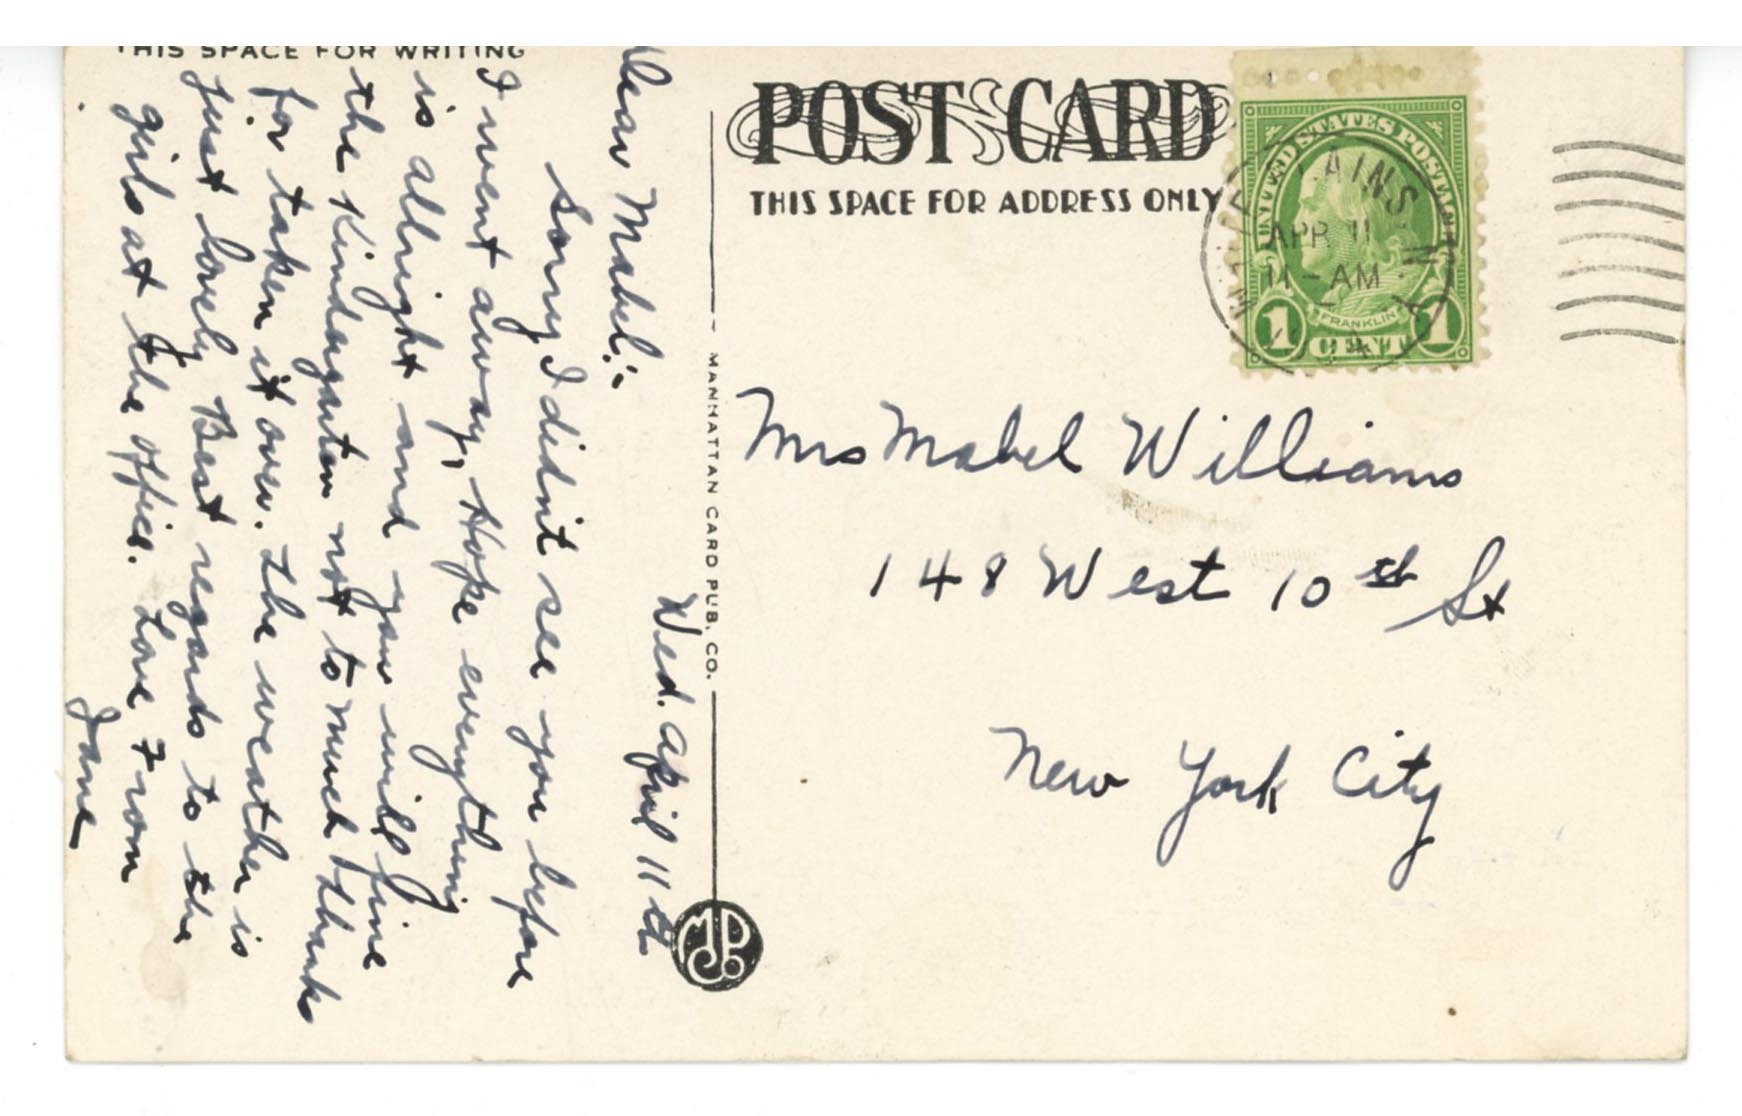 THIS SPACE FOR WRITING
Wed. April 11th
Dear Mabel:-
Sorry I didnt see you before
I went away, Hope everything
is allright and you will fine
the Kindergarten not to much thanks
for taken it over. The weather is
just lovely Best regards to the
girls at the office. Love From
Jane
MANHATTAN CARD PUB. CO.
MPCo
POST CARD
THIS SPACE FOR ADDRESS ONLY
UNITED STATES POSTAGE
FRANKLIN
1 CENT 1
APR 11
11 - AM
N.Y.
Mrs Mabel Williams
148 West 10th St
New York City